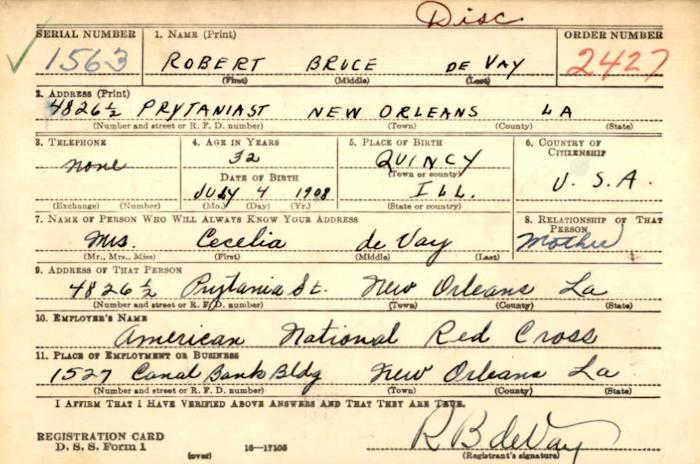 Disc
SERIAL NUMBER 1. NAME (Print) ORDER NUMBER
1563 ROBERT BRUCE DE VAY 2427
(First) (Middle) (Last)
2. ADDRESS (Print)
4826½ PRYTANIA ST NEW ORLEANS LA
(Number and street or R. F. D. number) (Town) (County) (State)
3. TELEPHONE 4. AGE IN YEARS 5. PLACE OF BIRTH 6. COUNTRY OF CITIZENSHIP
none 32 QUINCY U. S. A.
DATE OF BIRTH (Town or county)
JULY 4 1908 ILL.
(Exchange) (Number) (Mo.) (Day) (Yr.) (State or country)
7. NAME OF PERSON WHO WILL ALWAYS KNOW YOUR ADDRESS 8. RELATIONSHIP OF THAT PERSON
Mrs. Cecelia de Vay Mother
(Mr., Mrs., Miss) (First) (Middle) (Last)
9. ADDRESS OF THAT PERSON
4826½ Prytania St. New Orleans La
(Number and street or R. F. D. number) (Town) (County) (State)
10. EMPLOYER'S NAME
American National Red Cross
11. PLACE OF EMPLOYMENT OR BUSINESS
1527 Canal Bank Bldg New Orleans La
(Number and street or R. F. D. number) (Town) (County) (State)
I AFFIRM THAT I HAVE VERIFIED ABOVE ANSWERS AND THAT THEY ARE TRUE.
REGISTRATION CARD R B de Vay
D. S. S. Form 1 (over) 16—17105 (Registrant's signature)